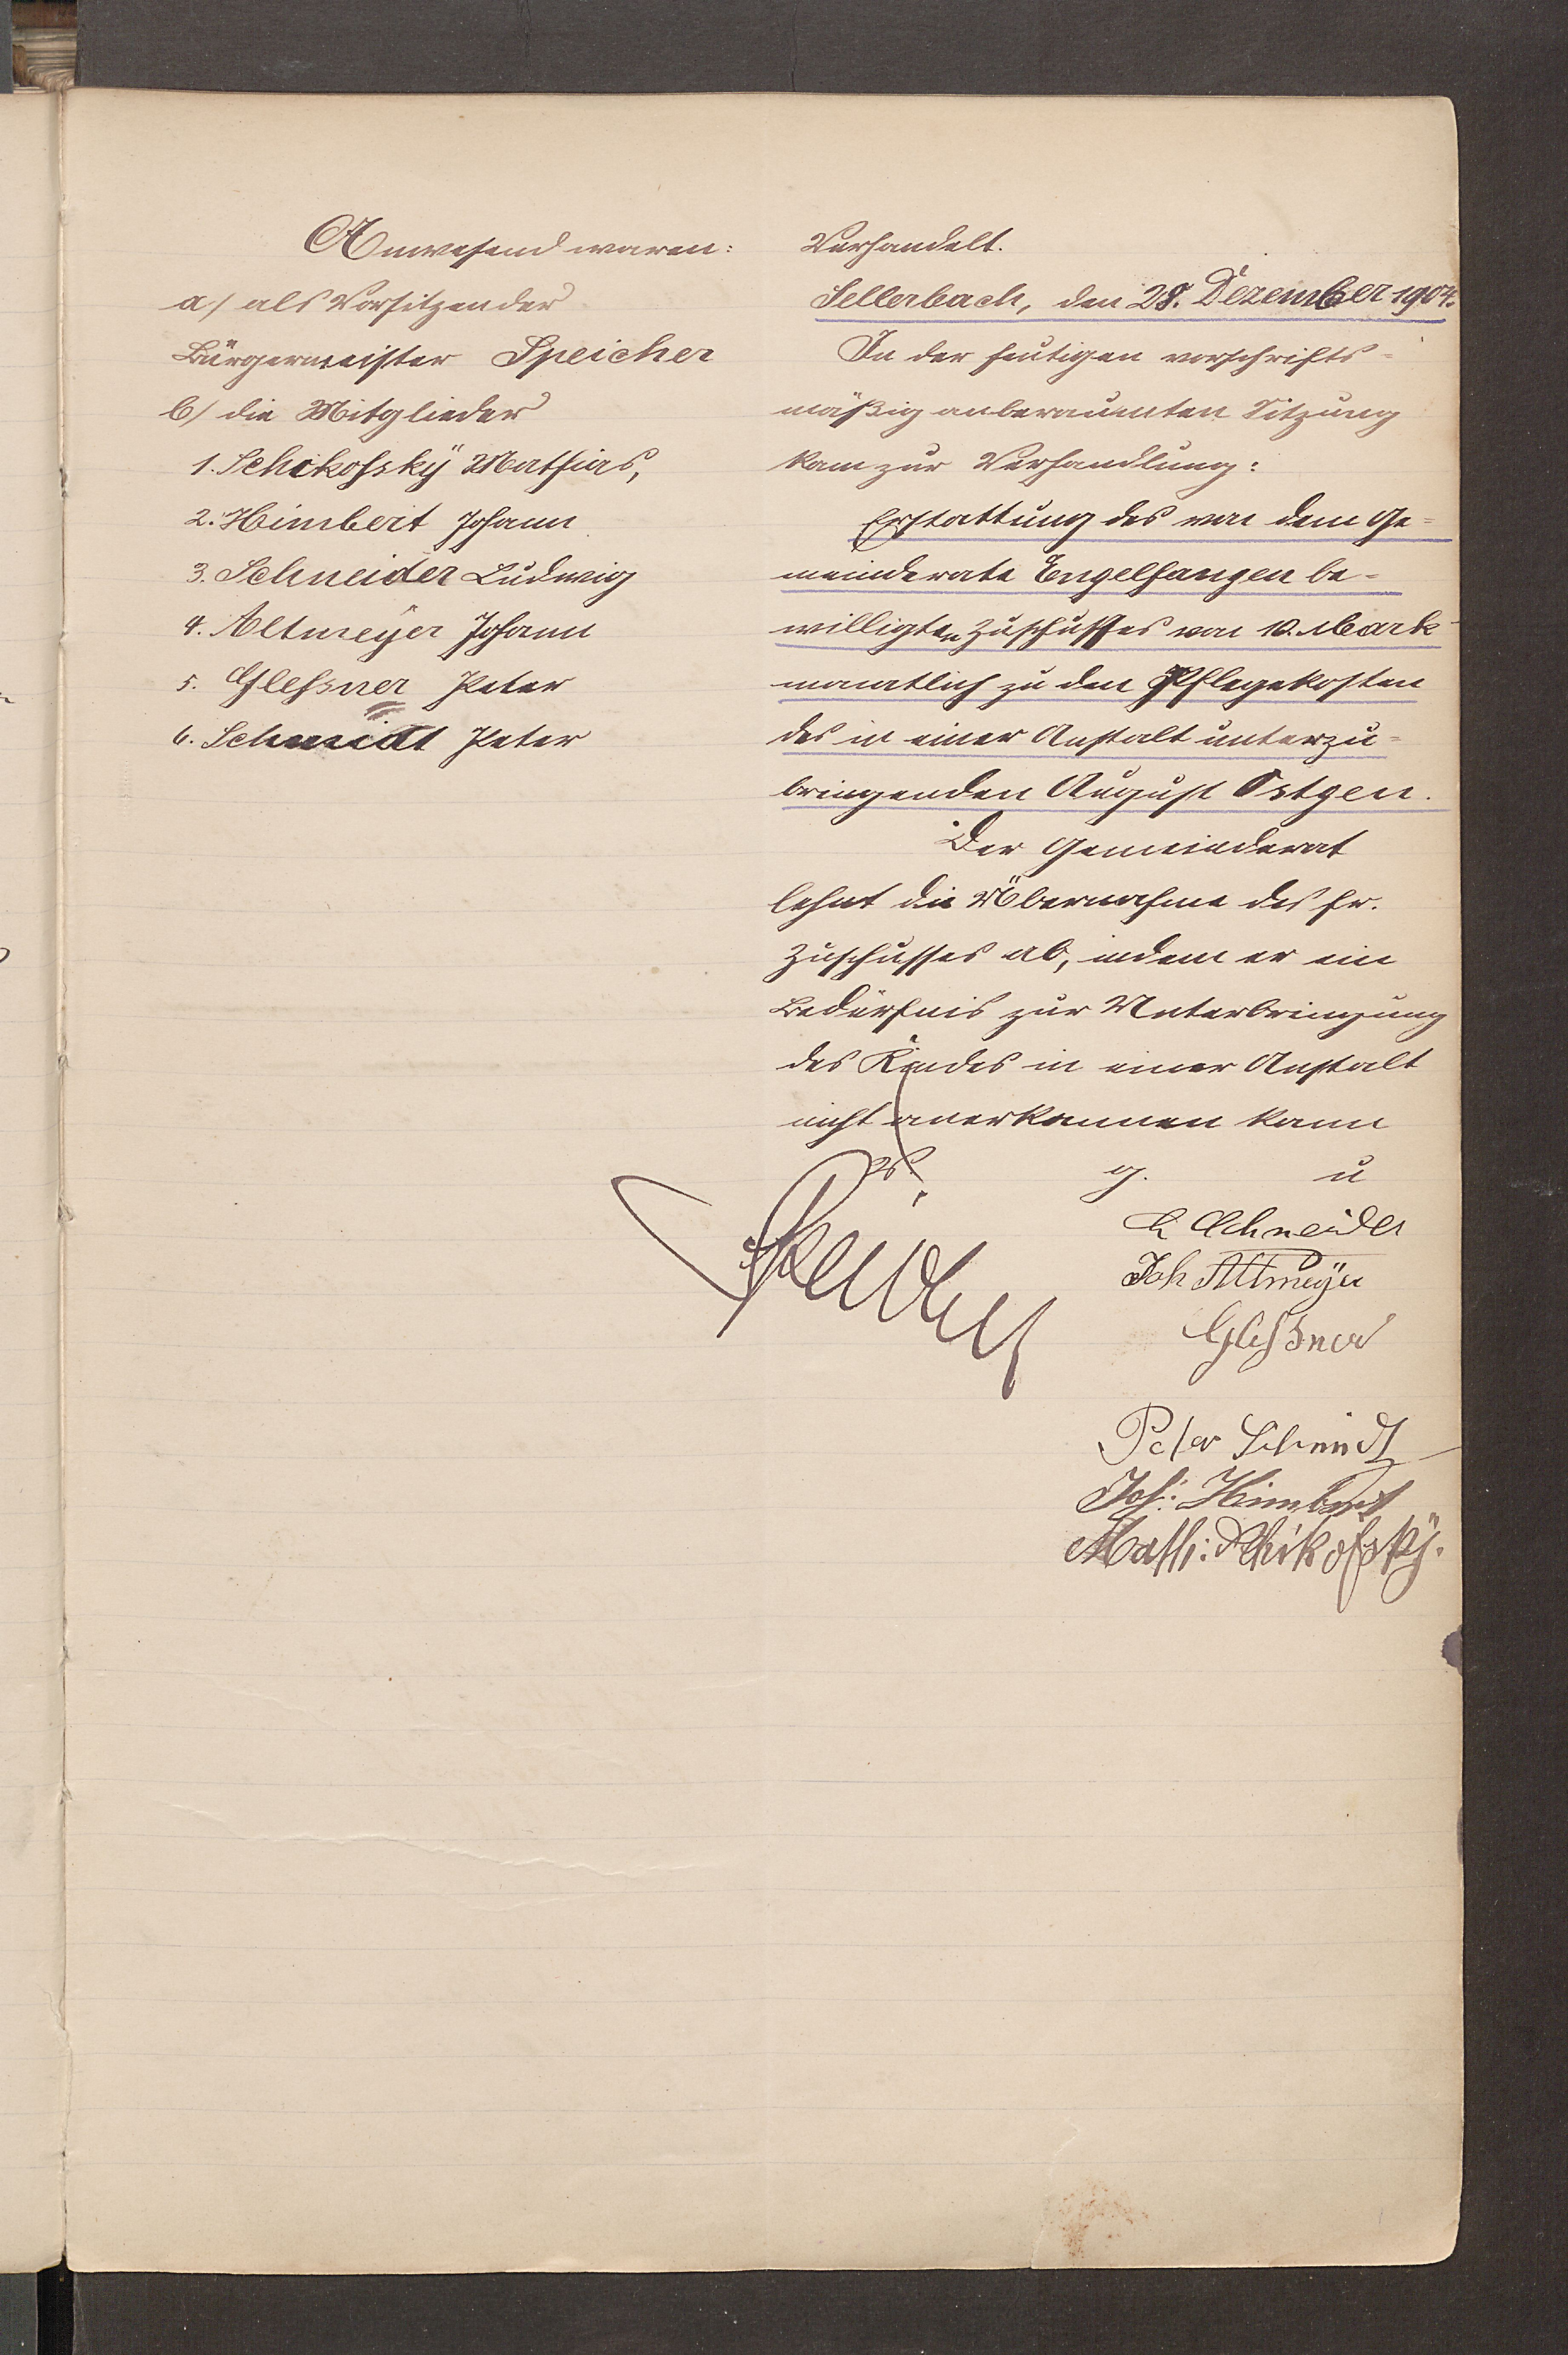 Anwesend waren:
a/ als Vorsitzender
Bürgermeister Speicher
b/ die Mitglieder
1. Schikofsky Mathias,
2. Himbert Johann
3. Schneider Ludwig
4. Altmeÿer Johann
5. Glessner Peter
6. Schmidt Peter
Verhandelt.
Sellerbach, den 28. Dezember 1904.
In der heutigen vorschrifts-
mäßig anberaumten Sitzung
kam zur Verhandlung:
Erstattung des von dem Ge-
meinderate Engelfangen be-
willigten Zuschusses von 10. Mark
monatlich zu den Pflegekosten
des in einer Anstalt unterzu-
bringenden August Östgen.
Der Gemeinderat
lehnt die Übernahme des fr.
Zuschusses ab, indem er ein
Bedürfnis zur Unterbringung
des Kindes in einer Anstalt
nicht anerkennen kann
g. u
Speicher
L Schneider
Joh Altmeÿer
Glessner
Peter Schmidt
Joh: Himbert
Math: Schikofskÿ.